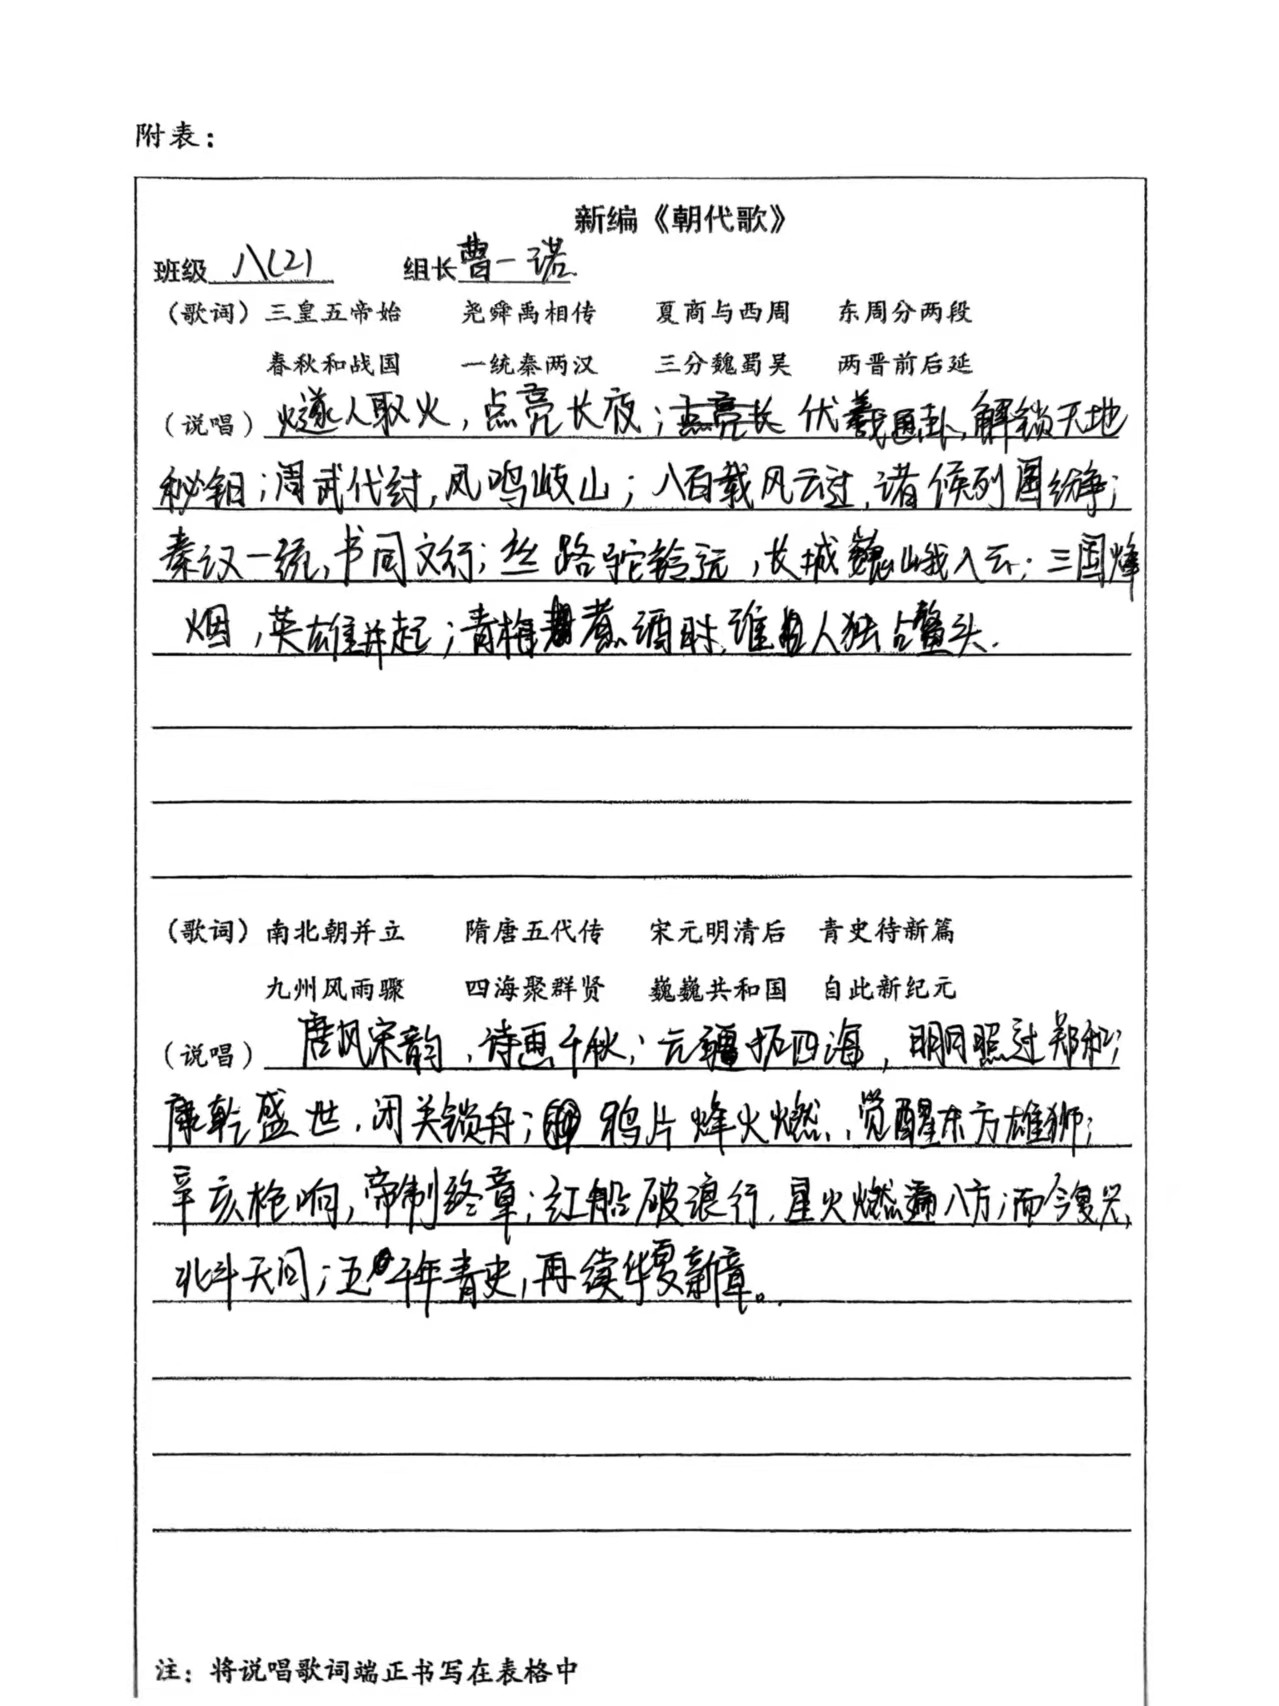 附表：
新编《朝代歌》
班级 八（2） 组长 曹一诺
（歌词）三皇五帝始 尧舜禹相传 夏商与西周 东周分两段
春秋和战国 一统秦两汉 三分魏蜀吴 两晋前后延
（说唱）燧人取火，点亮长夜；伏羲画卦，解锁天地
秘钥；周武代纣，凤鸣岐山；八百载风云过，诸侯列国纷争；
秦汉一统，书同文行；丝路驼铃远，长城巍峨入云；三国烽
烟，英雄并起；青梅煮酒时，谁人独占鳌头.
（歌词）南北朝并立 隋唐五代传 宋元明清后 青史待新篇
九州风雨骤 四海聚群贤 巍巍共和国 自此新纪元
（说唱）唐风宋韵，诗惠千秋；元疆拓四海，明月照过郑和；
康乾盛世，闭关锁舟；鸦片烽火燃，觉醒东方雄狮；
辛亥枪响，帝制终章；红船破浪行，星火燃遍八方；而今复兴，
北斗天问；五千年青史，再续华夏新章。
注：将说唱歌词端正书写在表格中